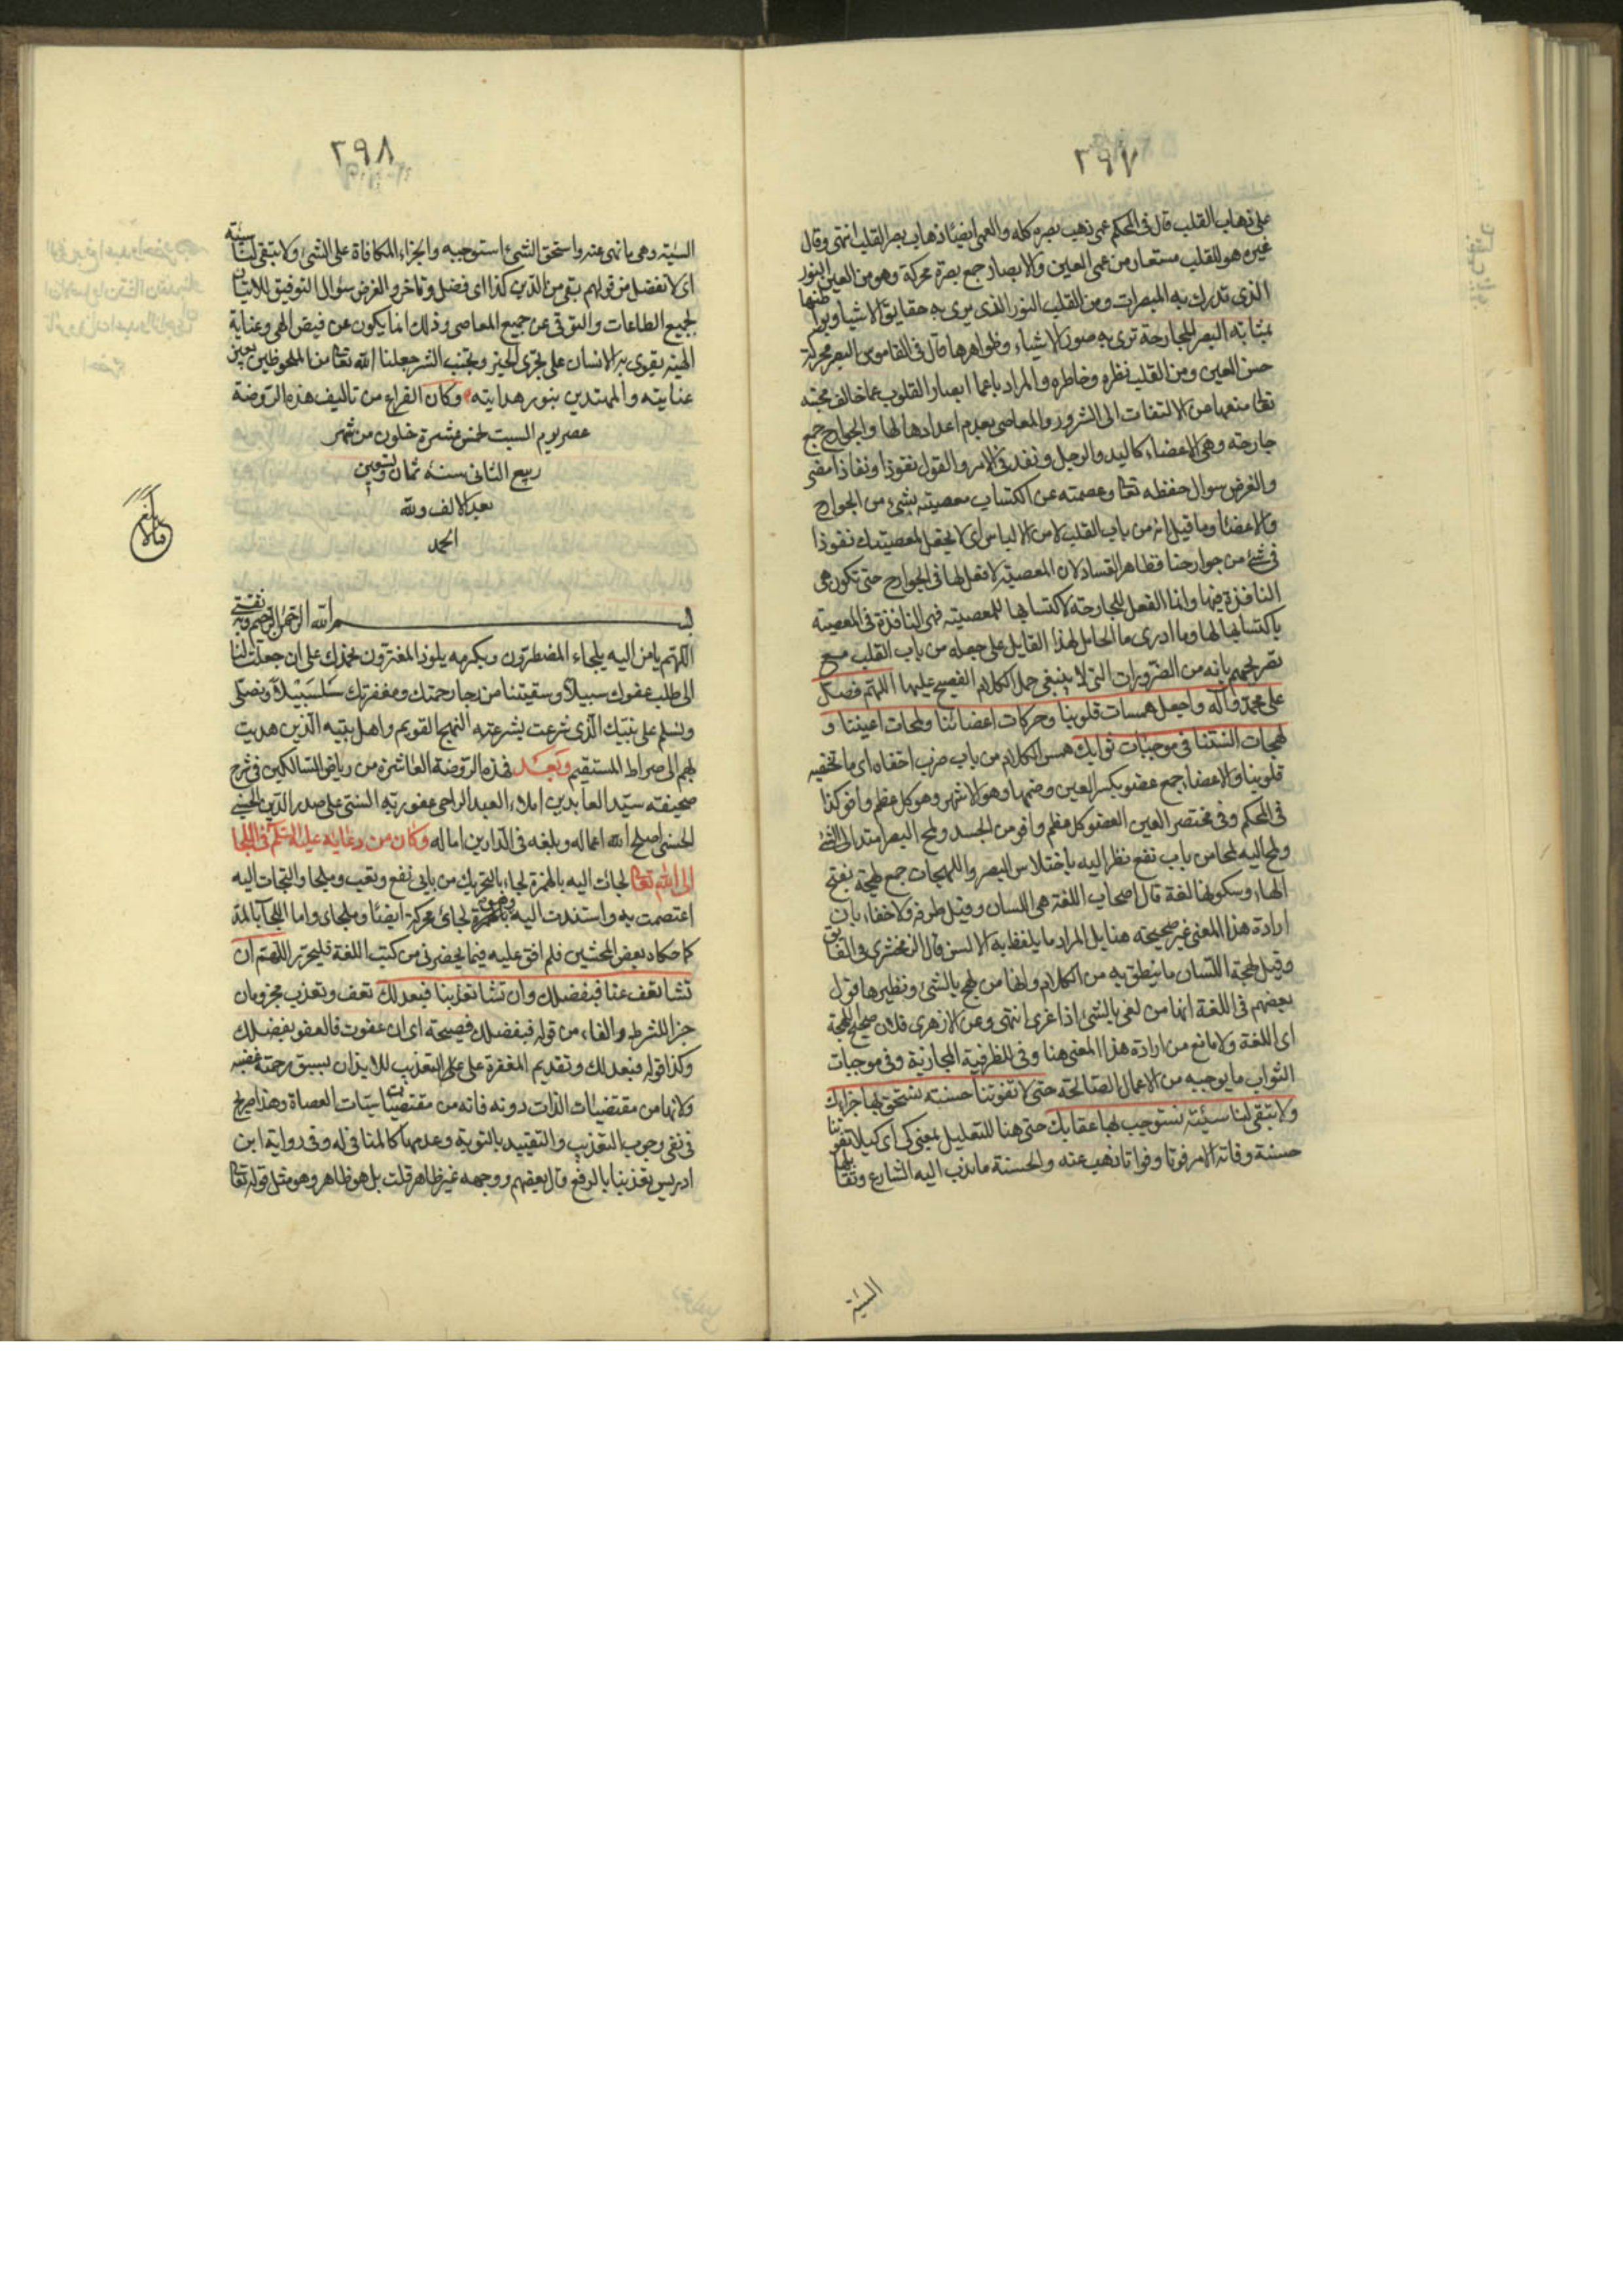 ٢٩٧
على ذهاب القلب قال فى المحكم عمى ذهب بصره كله والعمى ايضا ذهاب بصر القلب انتهى وقال
غيره هو للقلب مستعار من عمى العين والابصار جمع بصر محركة وهو من العين النور
الذى تدرك به المبصرات ومن القلب النور الذى يرى به حقايق الاشيا وبواطنها
بمثابة البصر للجارحة ترى به صور الاشياء وظواهرها قال فى القاموس البصر محركة
حس العين ومن القلب نظره وخاطره والمراد باعما ابصار القلوب عما خالف محبته
تعالى منعها من الالتفات الى الشرور والمعاصى بعدم اعدادها لها والجوارح جمع
جارحة وهى الاعضاء كاليد والرجل ونفذ فى الامر والقول نفوذا ونفاذا مضى
والغرض سوال حفظه تعالى وعصمته عن اكتساب معصيته بشئ من الجوارح
والاعضا وما قيل انه من باب القلب لامن الالباس اى لا تجعل لمعصيتك نفوذا
فى شئ من جوارحنا فظاهر الفساد لان المعصية لا فعل لها فى الجوارح حتى تكون هى
النافذة فيها وانما الفعل للجارحة لاكتسابها للمعصية فهى النافذة فى المعصية
باكتسابها لها وما ادرى ما الحامل لهذا القايل على جعله من باب القلب مع
تصريحهم بانه من الضرورات التى لا ينبغى حمل الكلام الفصيح عليها اللهم فصل
على محمد وآله واجعل همسات قلوبنا وحركات اعضائنا ولمحات اعيننا و
لهجات السنتنا فى موجبات ثوابك همس الكلام من باب ضرب اخفاه اى ما تخفيه
قلوبنا والاعضا جمع عضو بكسر العين وضمها وهو الاشهر وهو كل عظم وافر كذا
فى المحكم وفى مختصر العين العضو كل عظم وافر من الجسد ولمح البصر امتد الى الشئ
ولمح اليه لمحا من باب نفع نظر اليه باختلاس البصر واللهجات جمع لهجة بفتح
الهاء وسكونها لغة قال اصحاب اللغة هى اللسان وقيل طرفه ولا خفاء بان
ارادة هذا المعنى غير صحيحة هنا بل المراد ما يلفظ به الالسن قال الزمخشرى فى الفايق
وقيل لهجة اللسان ما ينطق به من الكلام وانها من لهج بالشئ ونظيرها قول
بعضهم فى اللغة انها من لغى بالشئ اذا غرى انتهى وعن الازهرى فلان صحيح اللهجة
اى اللغة ولا مانع من ارادة هذا المعنى هنا وفى للظرفية المجازية وفى موجبات
الثواب ما يوجبه من الاعمال الصالحة حتى لا تفوتنا حسنة نستحق بها جزاءك
ولا تبقى لنا سيئة نستوجب بها عقابك حتى هنا للتعليل بمعنى كى اى كيلا تفوتنا
حسنة وفاته الامر فوتا وفواتا ذهب عنه والحسنة ما ندب اليه الشارع وتقابلها
السيئة
٢٩٨
السيئة وهى ما نهى عنه واستحق الشئ استوجبه والجزاء المكافاة على الشئ ولا تبقى لنا سيئة
اى لا تفضل من قولهم بقى من الدين كذا اى فضل وتاخر والغرض سؤال التوفيق للاتيان
لجميع الطاعات والتوقى عن جميع المعاصى وذلك انما يكون عن فيض الهى وعناية
الهية يقوى بها الانسان على تحرى الخير وتجنب الشر جعلنا الله تعالى من الملحوظين بعين
عنايته والمهتدين بنور هدايته وكان الفراغ من تاليف هذه الروضة
عصر يوم السبت لخمس عشرة خلون من شهر
ربيع الثانى سنه ثمان وتسعين
بعد الالف ولله
الحمد
بسم الله الرحمن الرحيم وبه نقتى
اللهم يا من اليه يلجاء المضطرون وبكرمه يلوذ المغترون نحمدك على ان جعلت لنا
الى طلب عفوك سبيلا وسقيتنا من رجا رحمتك ومغفرتك سلسبيلا ونصلى
ونسلم على نبيك الذى شرعت بشرعته النهج القويم واهل بيته الذين هديت
بهم الى صراط المستقيم وبعد فهذه الروضة العاشرة من رياض السالكين فى شرح
صحيفة سيد العابدين املاء العبد الراجى عفو ربه السنى على صدر الدين الحسينى
الحسنى اصلح الله اعماله وبلغه فى الدارين اماله وكان من دعايه عليه السلم فى اللجا
الى الله تعالى لجات اليه بالهمزة لجاء بالتحريك من بابى نفع وتعب وملجا والتجات اليه
اعتصمت به واستندت اليه لجائ محركة ايضا وملجاى واما اللجآ بالمد
كما حكاه بعض المحشين فلم اقف عليه فيما يحضرنى من كتب اللغة فليحرر اللهم ان
تشا تعف عنا فبفضلك وان تشا تعذبنا فبعدلك تعف وتعذب مجزومان
جزا للشرط والفاء من قوله فبفضلك فصيحة اى ان عفوت فالعفو بفضلك
وكذا قوله فبعدلك وتقديم المغفرة على التعذيب للايذان بسبق رحمته غضبه
ولانها من مقتضيات الذات دونه فانه من مقتضيات سيئات العصاة وهذا صريح
فى نفى وجوب التعذيب والتقييد بالتوبة وعدمها كالمنافى له وفى رواية ابن
ادريس تعذبنا بالرفع قال بعضهم ووجهه غير ظاهر قلت بل هو ظاهر وهو مثل قوله تعالى